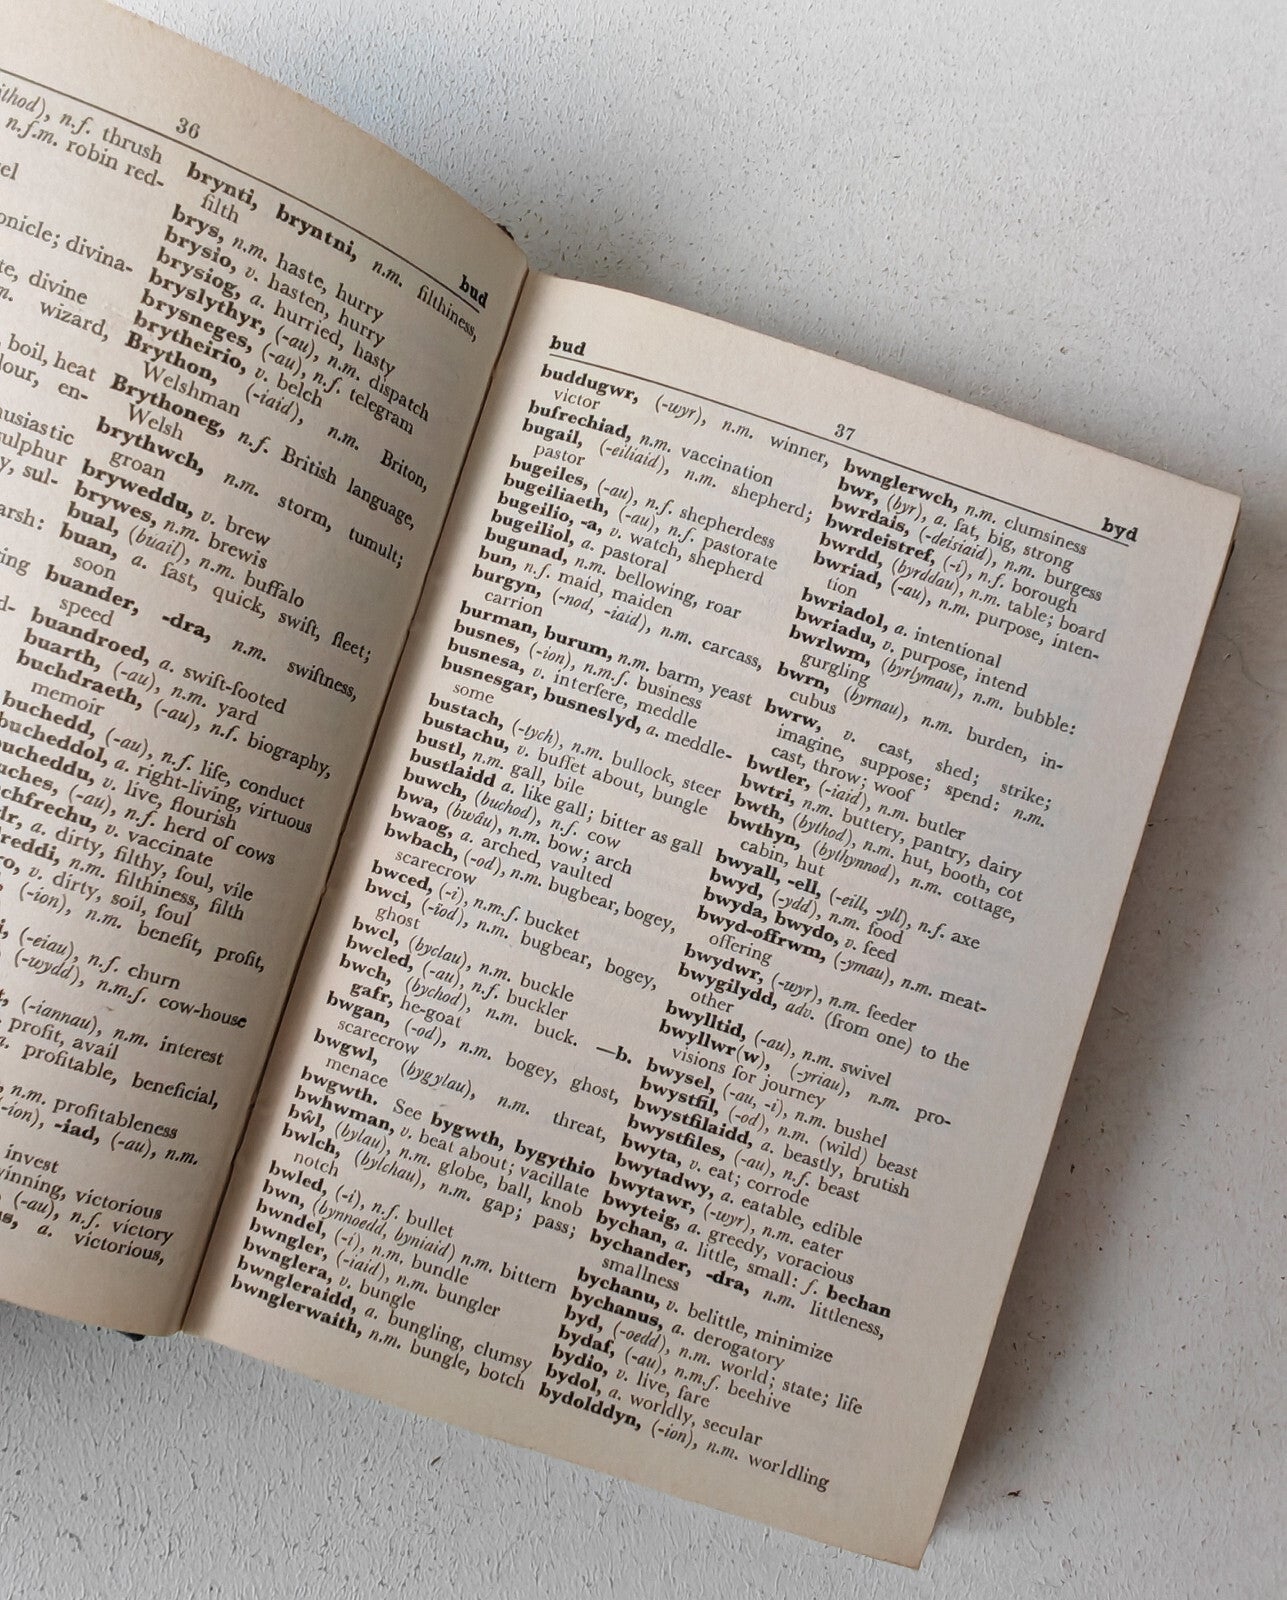 36
bud
ithod), n.f. thrush
n.f.m. robin red-
onicle; divina-
te, divine
wizard,
boil, heat
lour, en-
husiastic
sulphur
y, sul-
arsh:
brynti, bryntni, n.m. filthiness,
filth
brys, n.m. haste, hurry
brysio, v. hasten, hurry
brysiog, a. hurried, hasty
bryslythyr, (-au), n.m. dispatch
brysneges, (-au), n.f. telegram
brytheirio, v. belch
Brython, (-iaid), n.m. Briton,
Welshman
Brythoneg, n.f. British language,
Welsh
brythwch, n.m. storm, tumult;
groan
bryweddu, v. brew
brywes, n.m. brewis
bual, (buail), n.m. buffalo
buan, a. fast, quick, swift, fleet;
soon
buander, -dra, n.m. swiftness,
speed
buandroed, a. swift-footed
buarth, (-au), n.m. yard
buchdraeth, (-au), n.f. biography,
memoir
buchedd, (-au), n.f. life, conduct
bucheddol, a. right-living, virtuous
bucheddu, v. live, flourish
uches, (-au), n.f. herd of cows
chfrechu, v. vaccinate
dr, a. dirty, filthy, foul, vile
dreddi, n.m. filthiness, filth
ro, v. dirty, soil, foul
(-ion), n.m. benefit, profit,
(-eiau), n.f. churn
(-wydd), n.m.f. cow-house
(-iannau), n.m. interest
profit, avail
a. profitable, beneficial,
n.m. profitableness
-ion), -iad, (-au), n.m.
invest
winning, victorious
(-au), n.f. victory
a. victorious,
bud
37
byd
buddugwr, (-wyr), n.m. winner,
victor
bufrechiad, n.m. vaccination
bugail, (-eiliaid), n.m. shepherd;
pastor
bugeiles, (-au), n.f. shepherdess
bugeiliaeth, (-au), n.f. pastorate
bugeilio, -a, v. watch, shepherd
bugeiliol, a. pastoral
bugunad, n.m. bellowing, roar
bun, n.f. maid, maiden
burgyn, (-nod, -iaid), n.m. carcass,
carrion
burman, burum, n.m. barm, yeast
busnes, (-ion), n.m.f. business
busnesa, v. interfere, meddle
busnesgar, busneslyd, a. meddle-
some
bustach, (-tych), n.m. bullock, steer
bustachu, v. buffet about, bungle
bustl, n.m. gall, bile
bustlaidd a. like gall; bitter as gall
buwch, (buchod), n.f. cow
bwa, (bwâu), n.m. bow; arch
bwaog, a. arched, vaulted
bwbach, (-od), n.m. bugbear, bogey,
scarecrow
bwced, (-i), n.m.f. bucket
bwci, (-ïod), n.m. bugbear, bogey,
ghost
bwcl, (byclau), n.m. buckle
bwcled, (-au), n.f. buckler
bwch, (bychod), n.m. buck. —b.
gafr, he-goat
bwgan, (-od), n.m. bogey, ghost,
scarecrow
bwgwl, (bygylau), n.m. threat,
menace
bwgwth. See bygwth, bygythio
bwhwman, v. beat about; vacillate
bŵl, (bylau), n.m. globe, ball, knob
bwlch, (bylchau), n.m. gap; pass;
notch
bwled, (-i), n.f. bullet
bwn, (bynnoedd, byniaid) n.m. bittern
bwndel, (-i), n.m. bundle
bwngler, (-iaid), n.m. bungler
bwnglera, v. bungle
bwngleraidd, a. bungling, clumsy
bwnglerwaith, n.m. bungle, botch
bwnglerwch, n.m. clumsiness
bwr, (byr), a. fat, big, strong
bwrdais, (-deisiaid), n.m. burgess
bwrdeistref, (-i), n.f. borough
bwrdd, (byrddau), n.m. table; board
bwriad, (-au), n.m. purpose, inten-
tion
bwriadol, a. intentional
bwriadu, v. purpose, intend
bwrlwm, (byrlymau), n.m. bubble:
gurgling
bwrn, (byrnau), n.m. burden, in-
cubus
bwrw, v. cast, shed; strike;
imagine, suppose; spend: n.m.
cast, throw; woof
bwtler, (-iaid), n.m. butler
bwtri, n.m. buttery, pantry, dairy
bwth, (bythod), n.m. hut, booth, cot
bwthyn, (bythynnod), n.m. cottage,
cabin, hut
bwyall, -ell, (-eill, -yll), n.f. axe
bwyd, (-ydd), n.m. food
bwyda, bwydo, v. feed
bwyd-offrwm, (-ymau), n.m. meat-
offering
bwydwr, (-wyr), n.m. feeder
bwygilydd, adv. (from one) to the
other
bwylltid, (-au), n.m. swivel
bwyllwr(w), (-yriau), n.m. pro-
visions for journey
bwysel, (-au, -i), n.m. bushel
bwystfil, (-od), n.m. (wild) beast
bwystfilaidd, a. beastly, brutish
bwystfiles, (-au), n.f. beast
bwyta, v. eat; corrode
bwytadwy, a. eatable, edible
bwytawr, (-wyr), n.m. eater
bwyteig, a. greedy, voracious
bychan, a. little, small: f. bechan
bychander, -dra, n.m. littleness,
smallness
bychanu, v. belittle, minimize
bychanus, a. derogatory
byd, (-oedd), n.m. world; state; life
bydaf, (-au), n.m.f. beehive
bydio, v. live, fare
bydol, a. worldly, secular
bydolddyn, (-ion), n.m. worldling